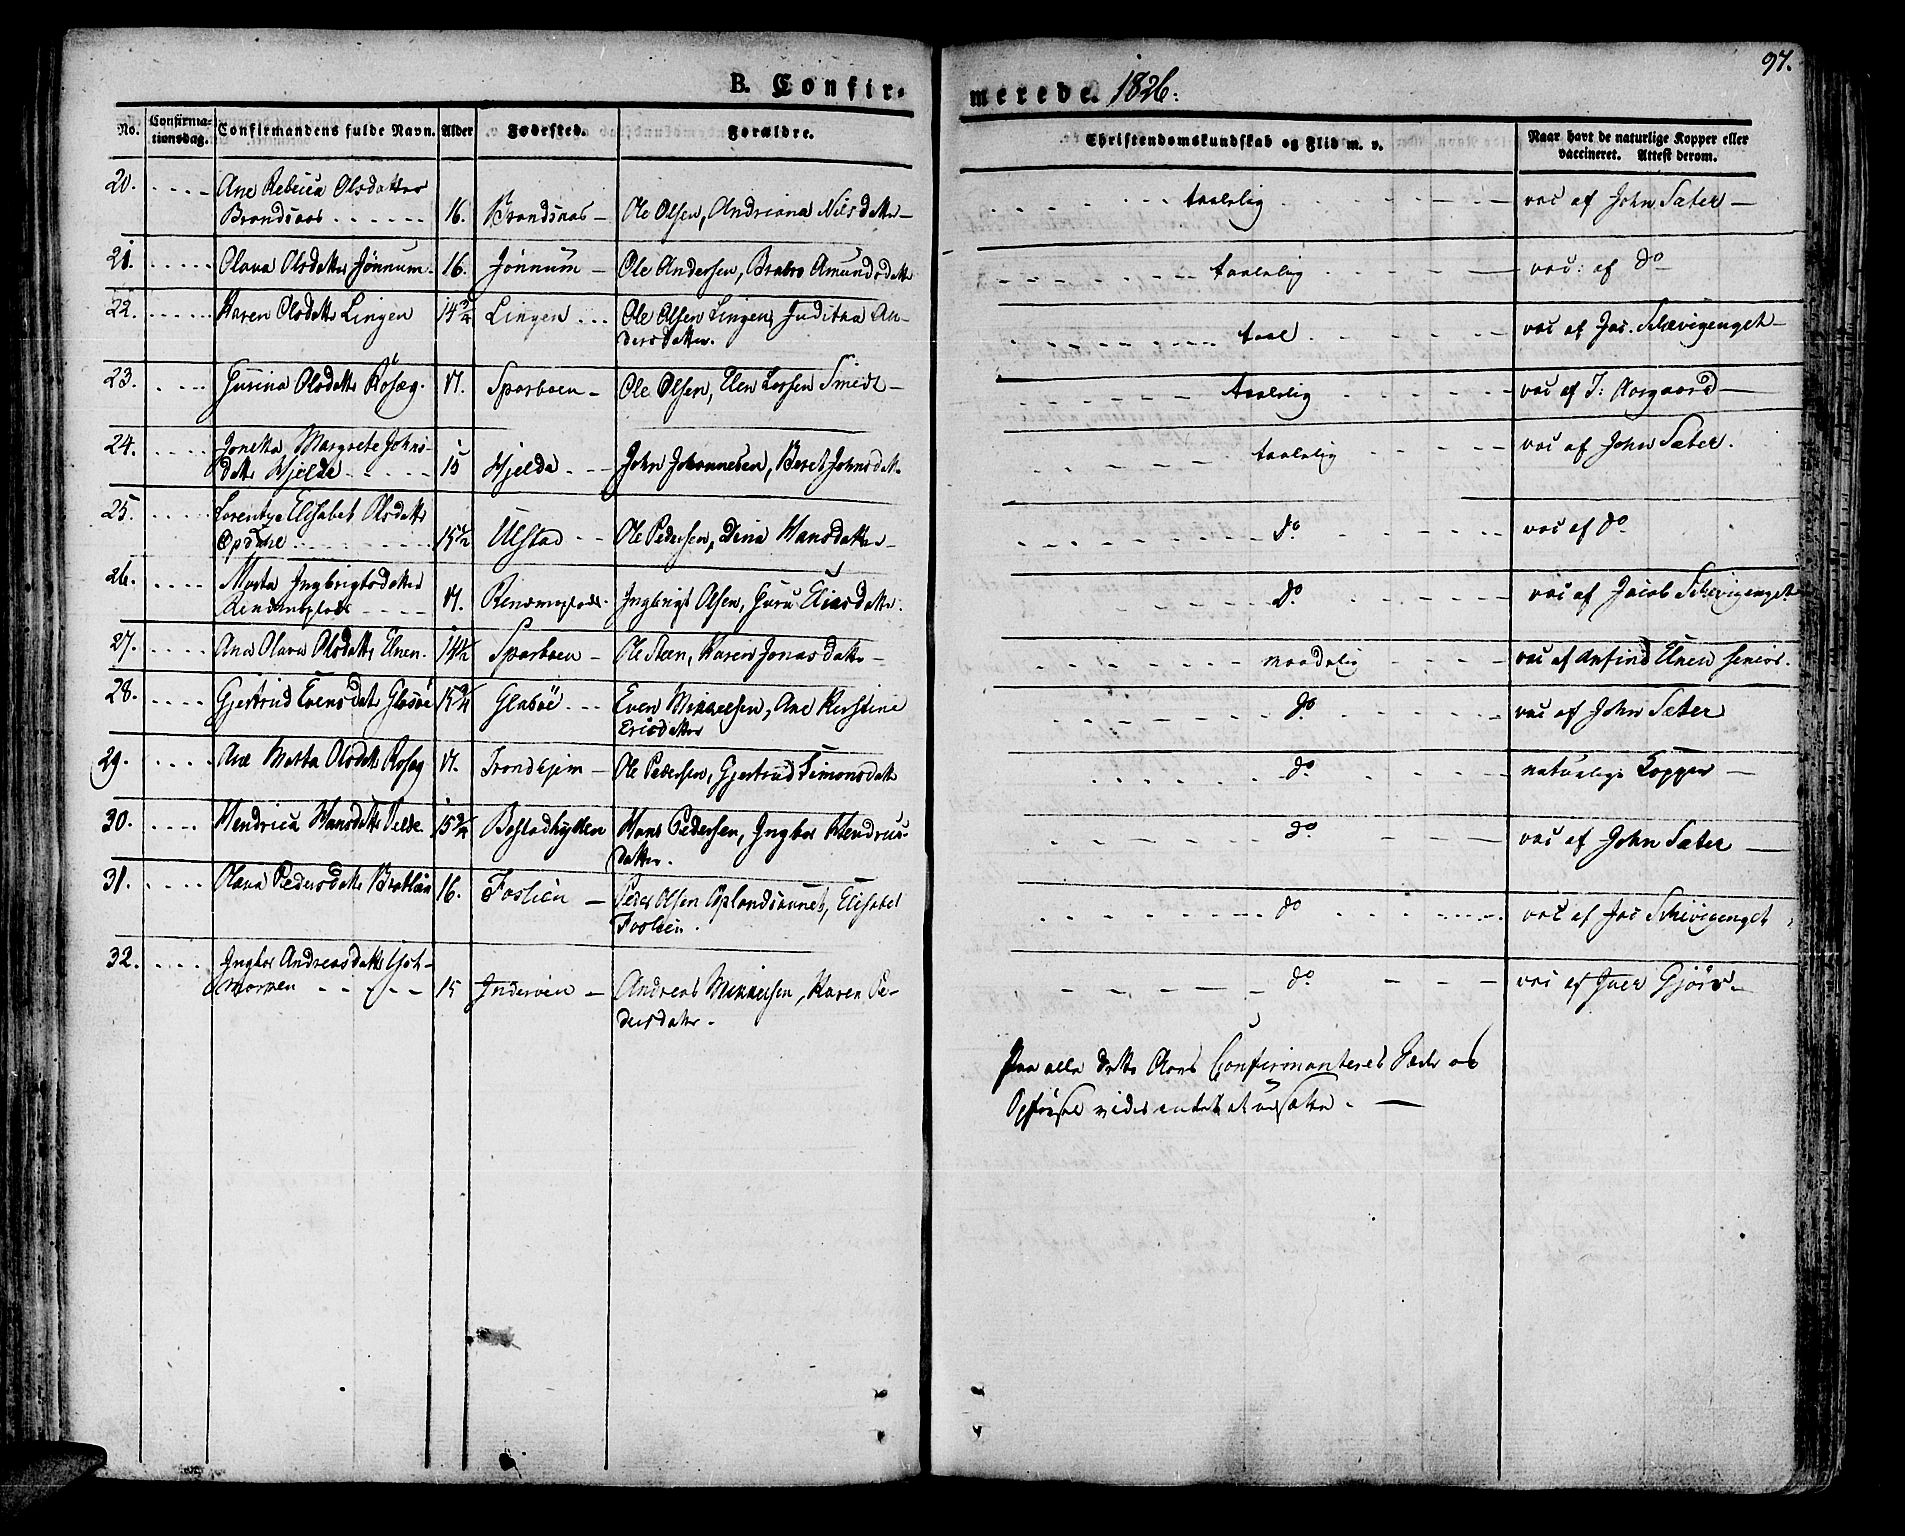 97.
B. Confirmerede. 1826:
No. Confirmationsdag. Confirmandens fulde Navn. Alder Fødested. Forældre. Christendomskundskab og Flid m. v. Naar havt de naturlige Kopper eller vaccineret. Attest derom.
20. Ane Rebecca Olsdatter
16. Ole Olsen, Andriana Nilsdatter taalelig vac af John Sæter
21. Olava Olsdatter Jönnum 16. Jönnum Ole Andersen, Amundsdatter taalelig vac: af do
22. Karen Olsdatter Lingen 14 3/4 Lingen Ole Olsen Lingen, Juditha An-
dersdatter. taal vac af Jac. Schevigenget
23. Gurina Olsdatter 17. Sparboen Ole Olsen, Elen Smidt taalelig vac af J: Aargaard
24. Jonetta Margrete Johns-
datter Hjelde 15 Hjelde John Johannesen, Beret Johnsdatter taalelig vac af John Sæter.
25. Elisabet Olsdatter
15 1/2 Ulstad Ole Pedersen, Dina Hansdatter do vac af do
26. Marta Ingbrigtsdatter
17. Ingbrigt Olsen, Guru Eliasdatter. do vac af Jacob Schevigenget
27. Ana Olava Olsdatter Elnen 14 1/2 Sparboen Ole Steen, Karen Jonasdatter maadelig vac af Arfind Elnen senior.
28. Gjertrud Evensdat Glasöe 15 3/4 Glasöe Even Mikkelsen, Ane Kirstine
Ericsdatter do vac af John Sæter
29. Ane Marta Olsdatter 17. Trondhjem Ole Pedersen, Gjertrud Simonsdatter do naturlige Kopper
30. Hendrica Hansdatter 15 3/4 Hans Pedersen, Ingbor Hendrics-
datter. do vac af John Sæter
31. Olava Pedersdatter 16. Foslien Peder Olsen Oplandsaunet, Elisabet
Foslien. do vac af Jac Schevigenget
32. Ingbor Andreasdatter
15 Inderöen Andreas Mikkelsen, Karen Pe-
dersdatter. do vac af Iver Gjörv
Paa alle dette Aars Confirmanteres Sæder og
Opförsel vides intet at udsætte.